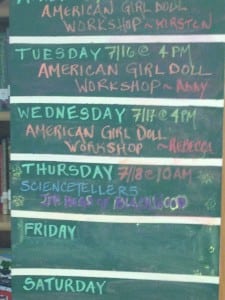 AMERICAN GIRL DOLL
WORKSHOP ~ KIRSTEN
TUESDAY 7/16@ 4PM
AMERICAN GIRL DOLL
WORKSHOP ~ Addy
WEDNESDAY 7/17@ 4PM
AMERICAN GIRL DOLL
WORKSHOP ~ REBECCA
THURSDAY 7/18@ 10AM
SCIENCETELLERS
FRIDAY
SATURDAY